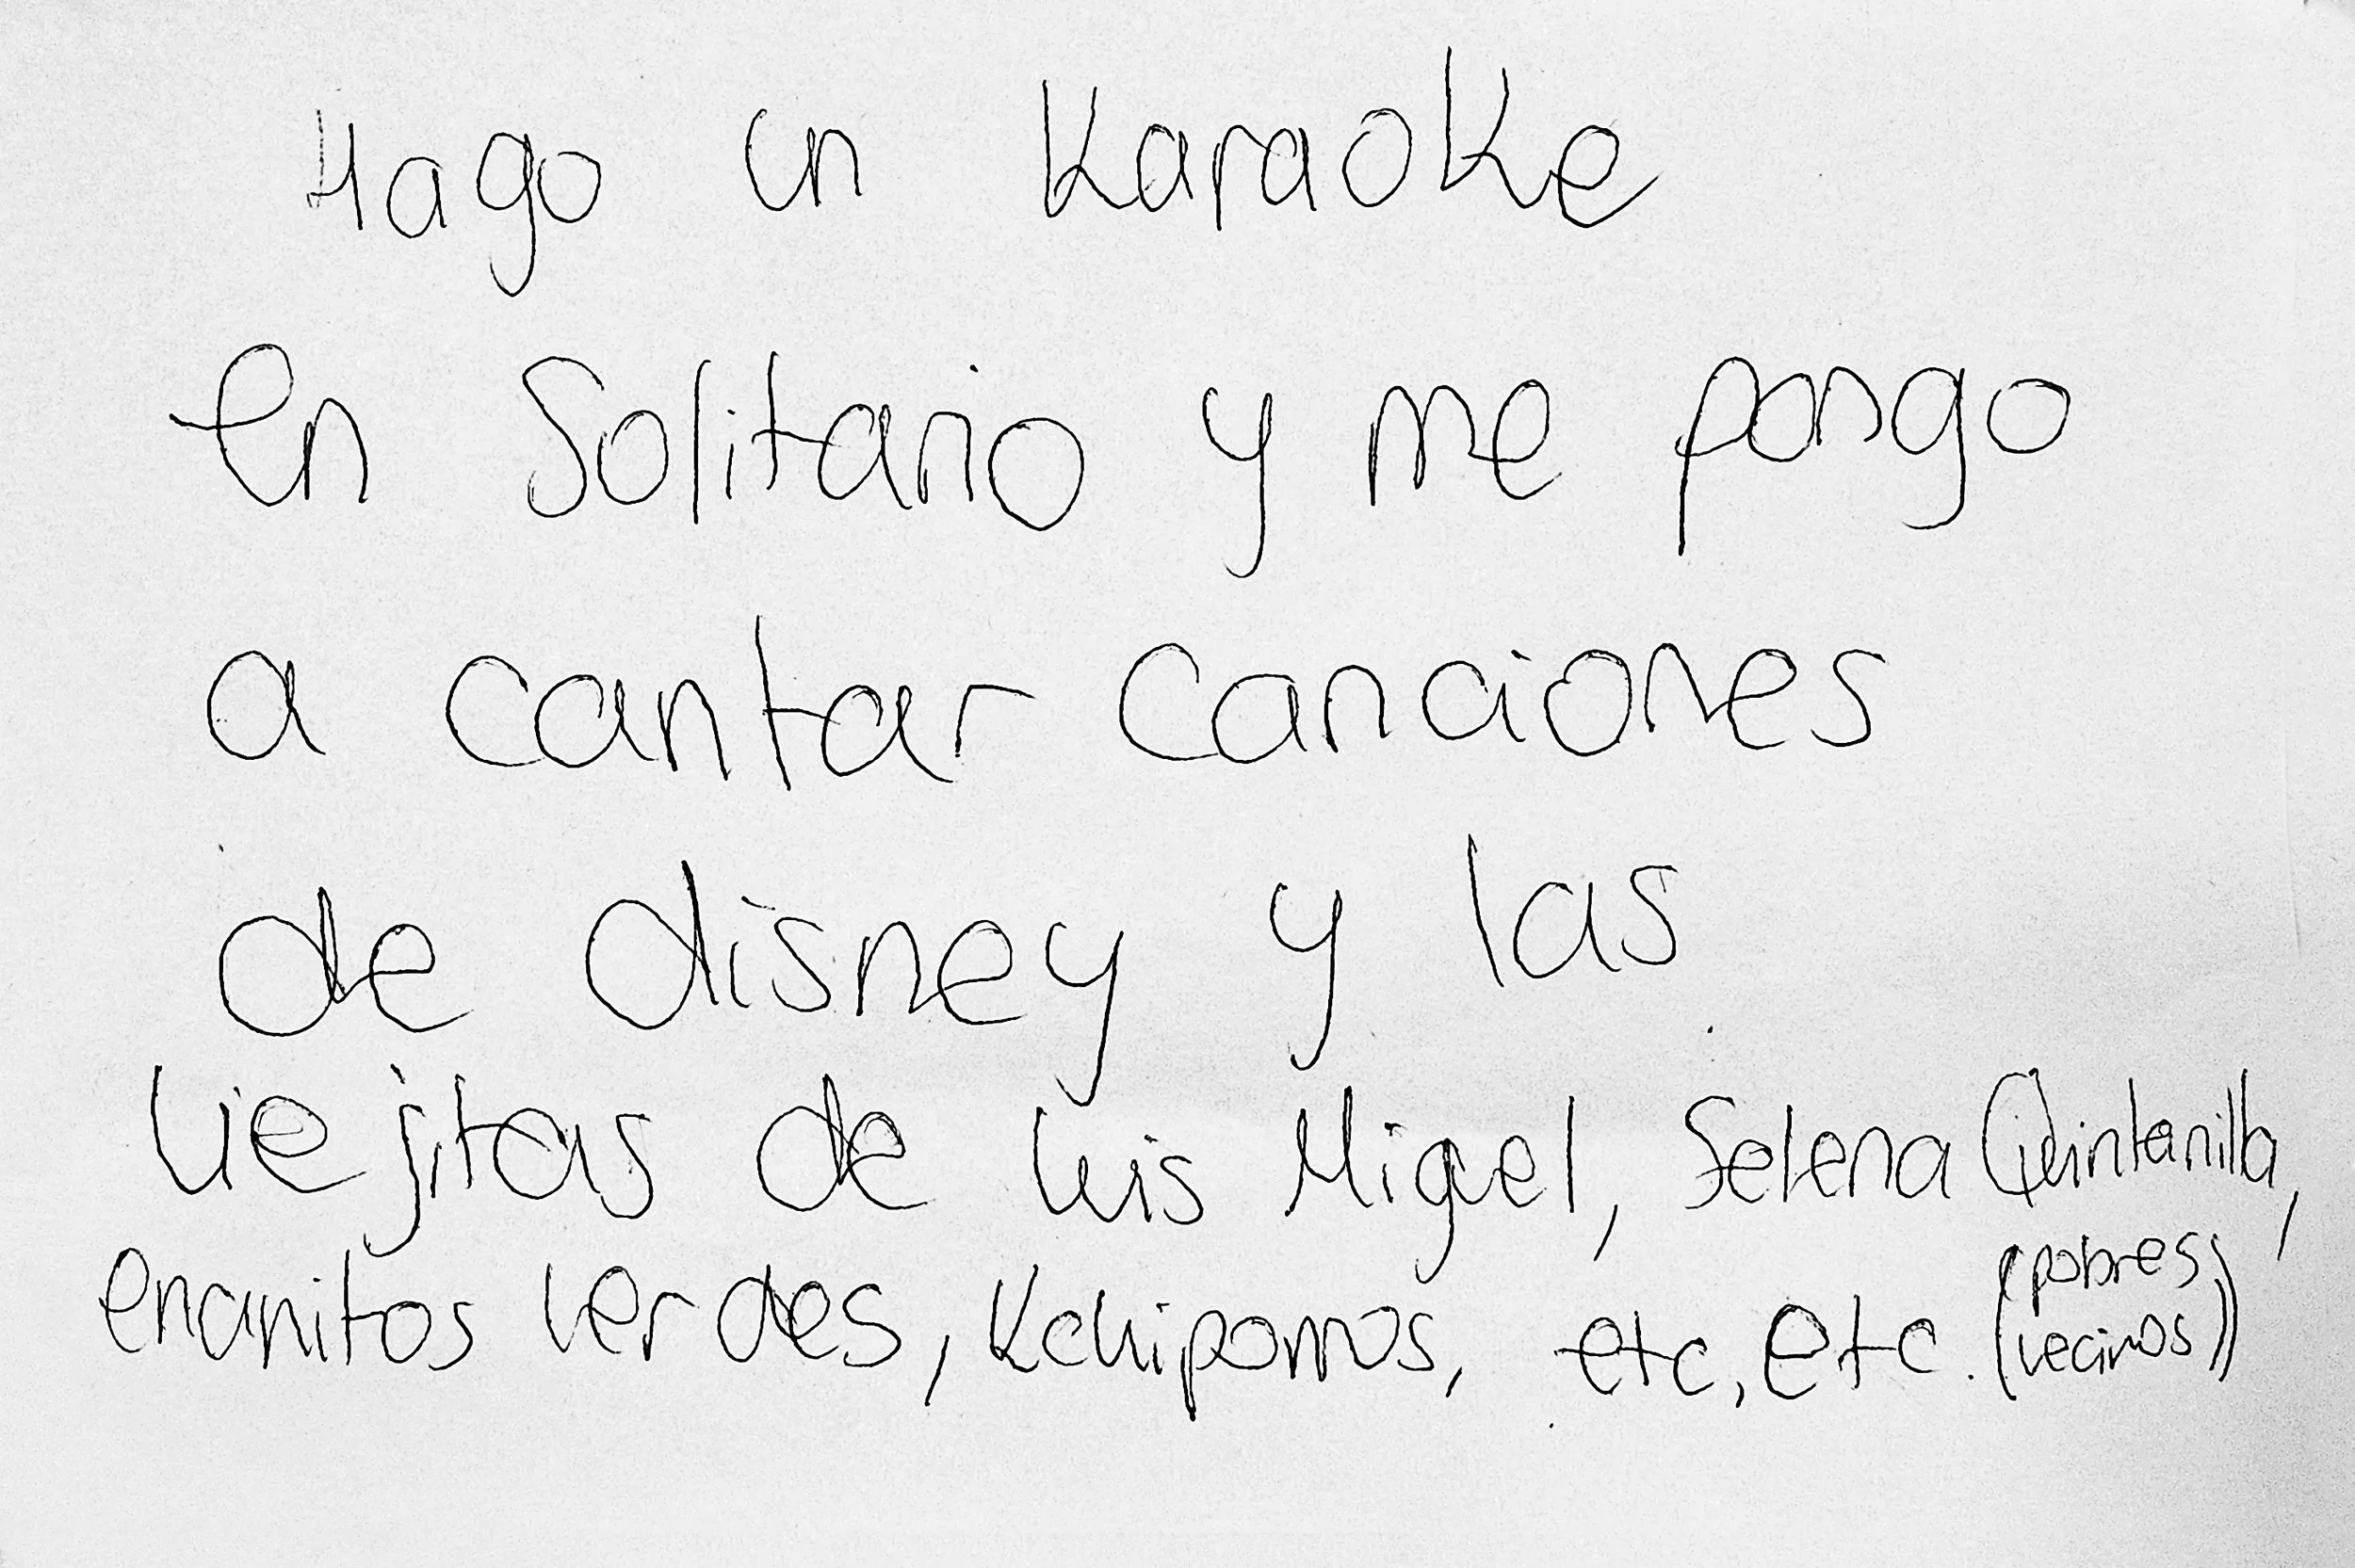 Hago un Karaoke
en Solitario y me pongo
a cantar canciones
de disney y las
viejitas de Luis Miguel, Selena Quintanilla,
enanitos verdes, Kchiporros, etc, etc. (pobres vecinos)